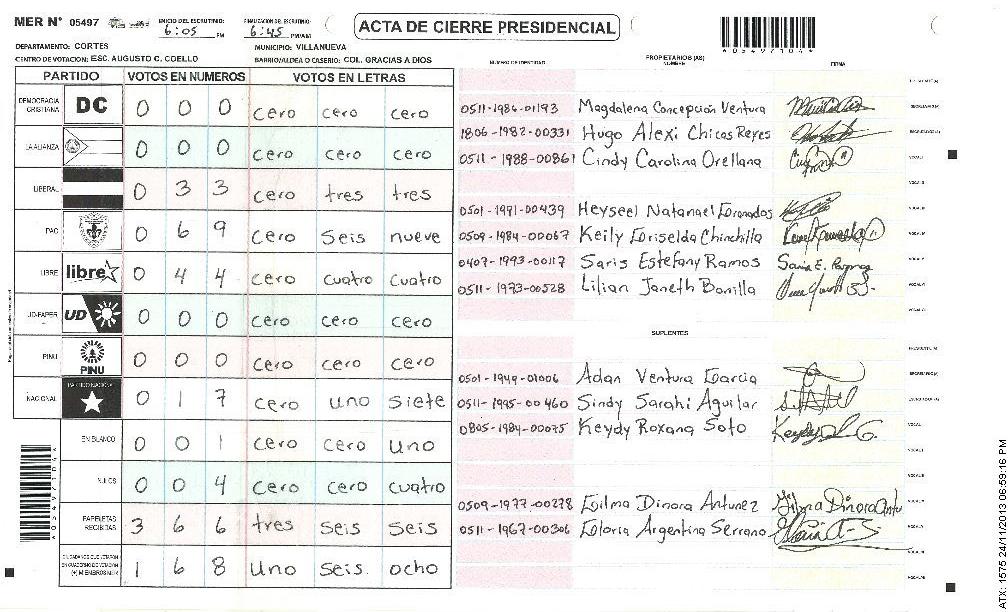 MER N° 05497 INICIO DEL ESCRUTINIO: 6:05 PM FINALIZACION DEL ESCRUTINIO: 6:45 PM/AM ACTA DE CIERRE PRESIDENCIAL
*05497104*
DEPARTAMENTO: CORTES MUNICIPIO: VILLANUEVA
CENTRO DE VOTACION: ESC. AUGUSTO C. COELLO BARRIO/ALDEA O CASERIO: COL. GRACIAS A DIOS
NUMERO DE IDENTIDAD PROPIETARIOS (AS) NOMBRE FIRMA
PARTIDO VOTOS EN NUMEROS VOTOS EN LETRAS
DEMOCRACIA CRISTIANA DC 0 0 0 cero cero cero
LA ALIANZA 0 0 0 cero cero cero
LIBERAL 0 3 3 cero tres tres
PAC 0 6 9 cero seis nueve
LIBRE libre 0 4 4 cero cuatro cuatro
UD-FAPER UD 0 0 0 cero cero cero
PINU PINU 0 0 0 cero cero cero
NACIONAL PARTIDO NACIONAL 0 1 7 cero uno siete
EN BLANCO 0 0 1 cero cero uno
NULOS 0 0 4 cero cero cuatro
PAPELETAS RECIBIDAS 3 6 6 tres seis seis
CIUDADANOS QUE VOTARON EN CUADERNO DE VOTACION (+) MIEMBROS MER 1 6 8 uno seis ocho
0511-1986-01193 Magdalena Concepción Ventura
1806-1982-00331 Hugo Alexi Chicas Reyes
0511-1988-00861 Cindy Carolina Orellana
0501-1991-00439 Heyseel Natanael Granados
0509-1984-00067 Keily Griselda Chinchilla
0407-1993-00117 Saris Estefany Ramos
0511-1973-00528 Lilian Janeth Bonilla
SUPLENTES
0501-1949-01006 Adan Ventura Garcia
0511-1995-00460 Sindy Sarahi Aguilar
0805-1984-00075 Keydy Roxana Soto
0509-1977-00278 Gilma Dinora Antunez
0511-1967-00306 Gloria Argentina Serrano
*05497104*
ATX: 1575 24/11/2013 06:59:16 PM